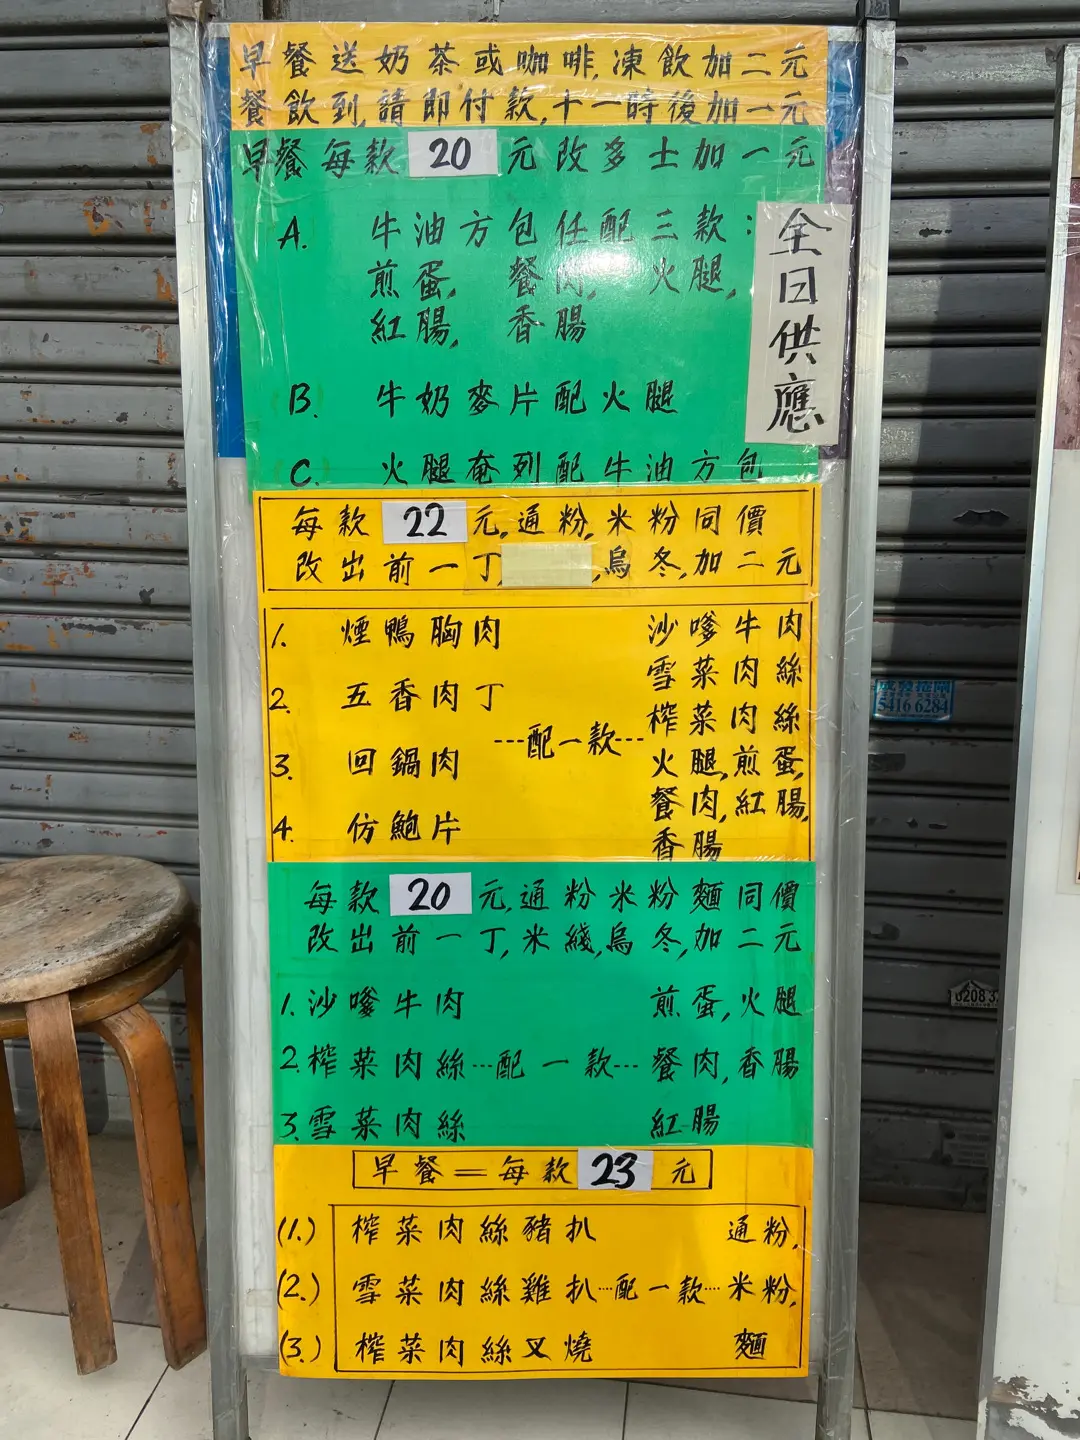 早餐送奶茶或咖啡,凍飲加二元
餐飲到,請即付款,十一時後加一元
早餐每款 20 元改多士加一元
A. 牛油方包任配三款:
煎蛋, 餐肉, 火腿,
紅腸, 香腸
全日供應
B. 牛奶麥片配火腿
C. 火腿奄列配牛油方包
每款 22 元,通粉,米粉同價
改出前一丁, ,烏冬,加二元
1. 煙鴨胸肉
2. 五香肉丁
3. 回鍋肉
4. 仿鮑片
---配一款---
沙嗲牛肉
雪菜肉絲
榨菜肉絲
火腿,煎蛋,
餐肉,紅腸,
香腸
每款 20 元,通粉米粉麵同價
改出前一丁,米綫,烏冬,加二元
1. 沙嗲牛肉 煎蛋,火腿
2. 榨菜肉絲---配一款---餐肉,香腸
3. 雪菜肉絲 紅腸
早餐=每款 23 元
(1.) 榨菜肉絲豬扒 通粉,
(2.) 雪菜肉絲雞扒---配一款---米粉,
(3.) 榨菜肉絲叉燒 麵
5416 6284